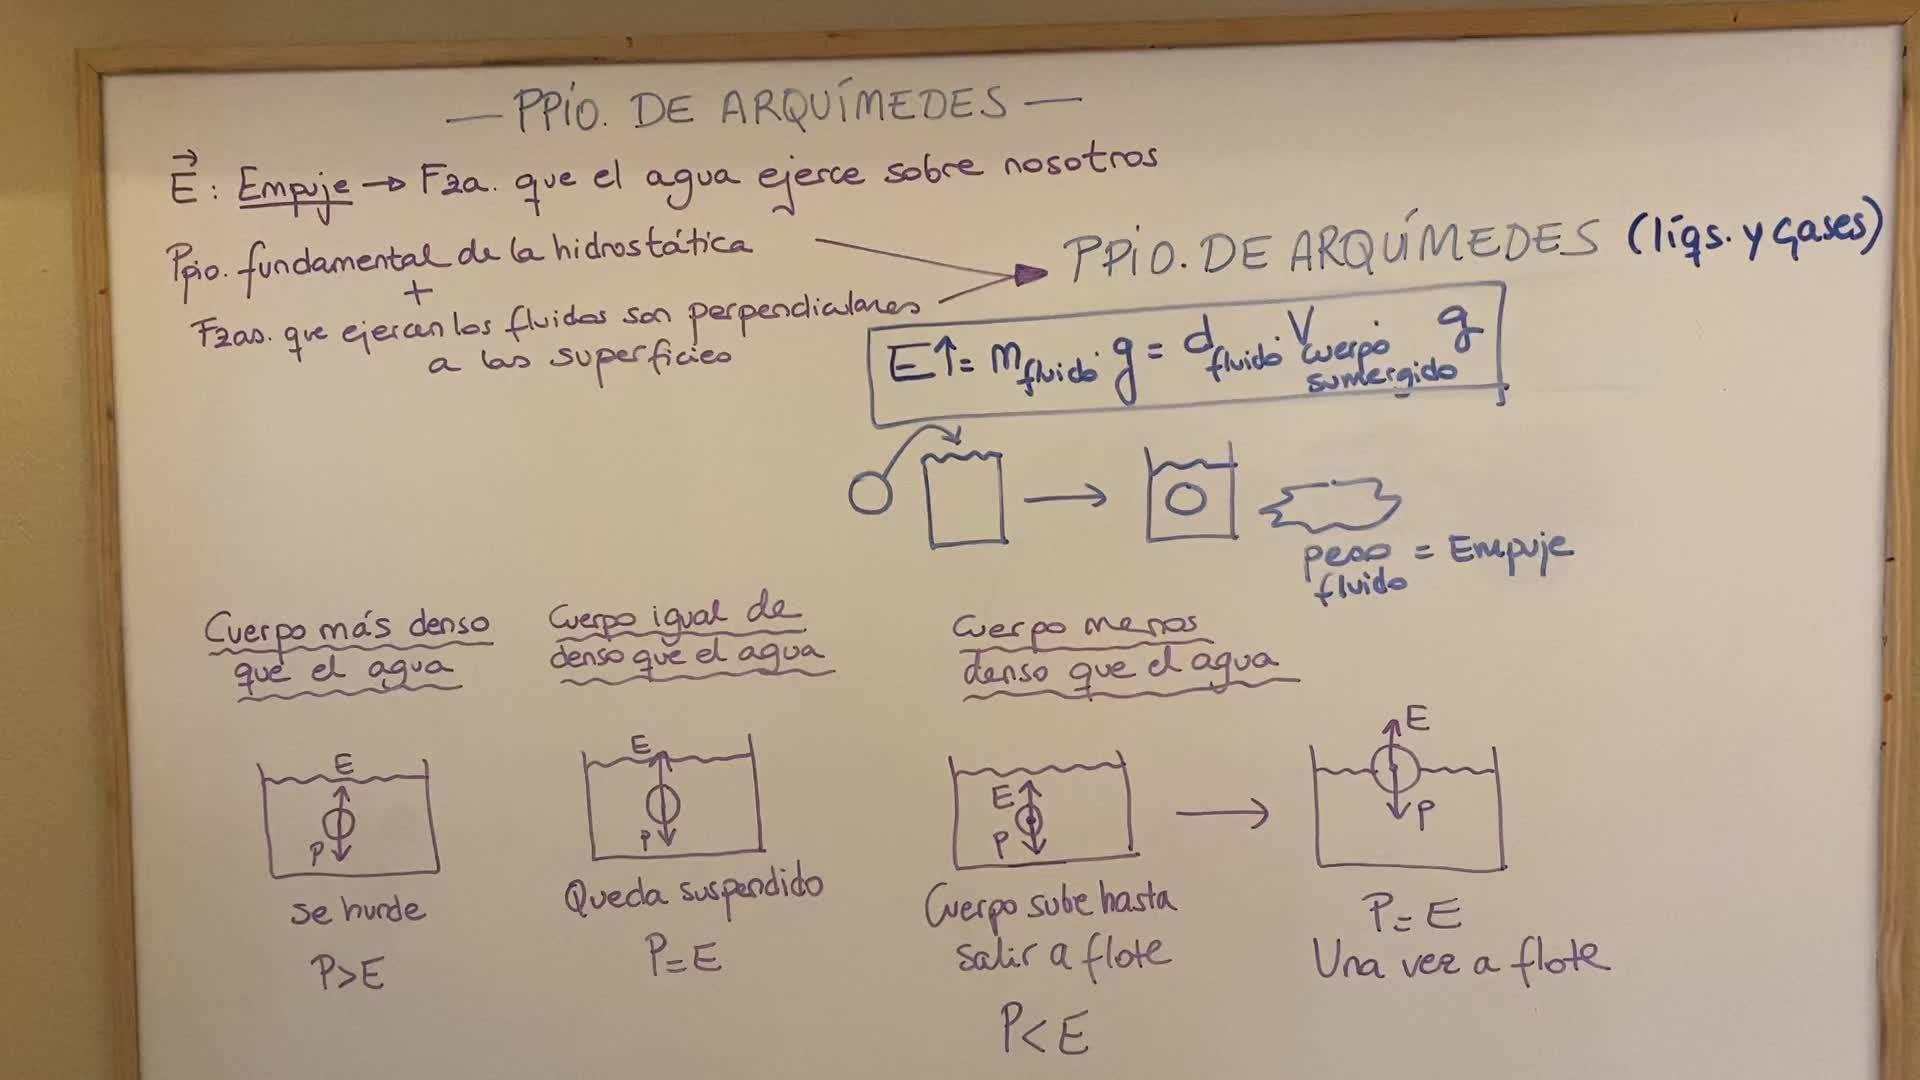 — PPÍO. DE ARQUÍMEDES —
E: Empuje → Fza. que el agua ejerce sobre nosotros
Ppio. fundamental de la hidrostática
+
Fzas. que ejercen los fluidos son perpendiculares
a las superficies
PPIO. DE ARQUÍMEDES (líqs. y gases)
E↑ = m fluido · g = d fluido · V cuerpo sumergido · g
peso fluido = Empuje
Cuerpo más denso
que el agua
E
P
Se hunde
P>E
Cuerpo igual de
denso que el agua
E
P
Queda suspendido
P=E
Cuerpo menos
denso que el agua
E
P
Cuerpo sube hasta
salir a flote
P<E
E
P
P=E
Una vez a flote